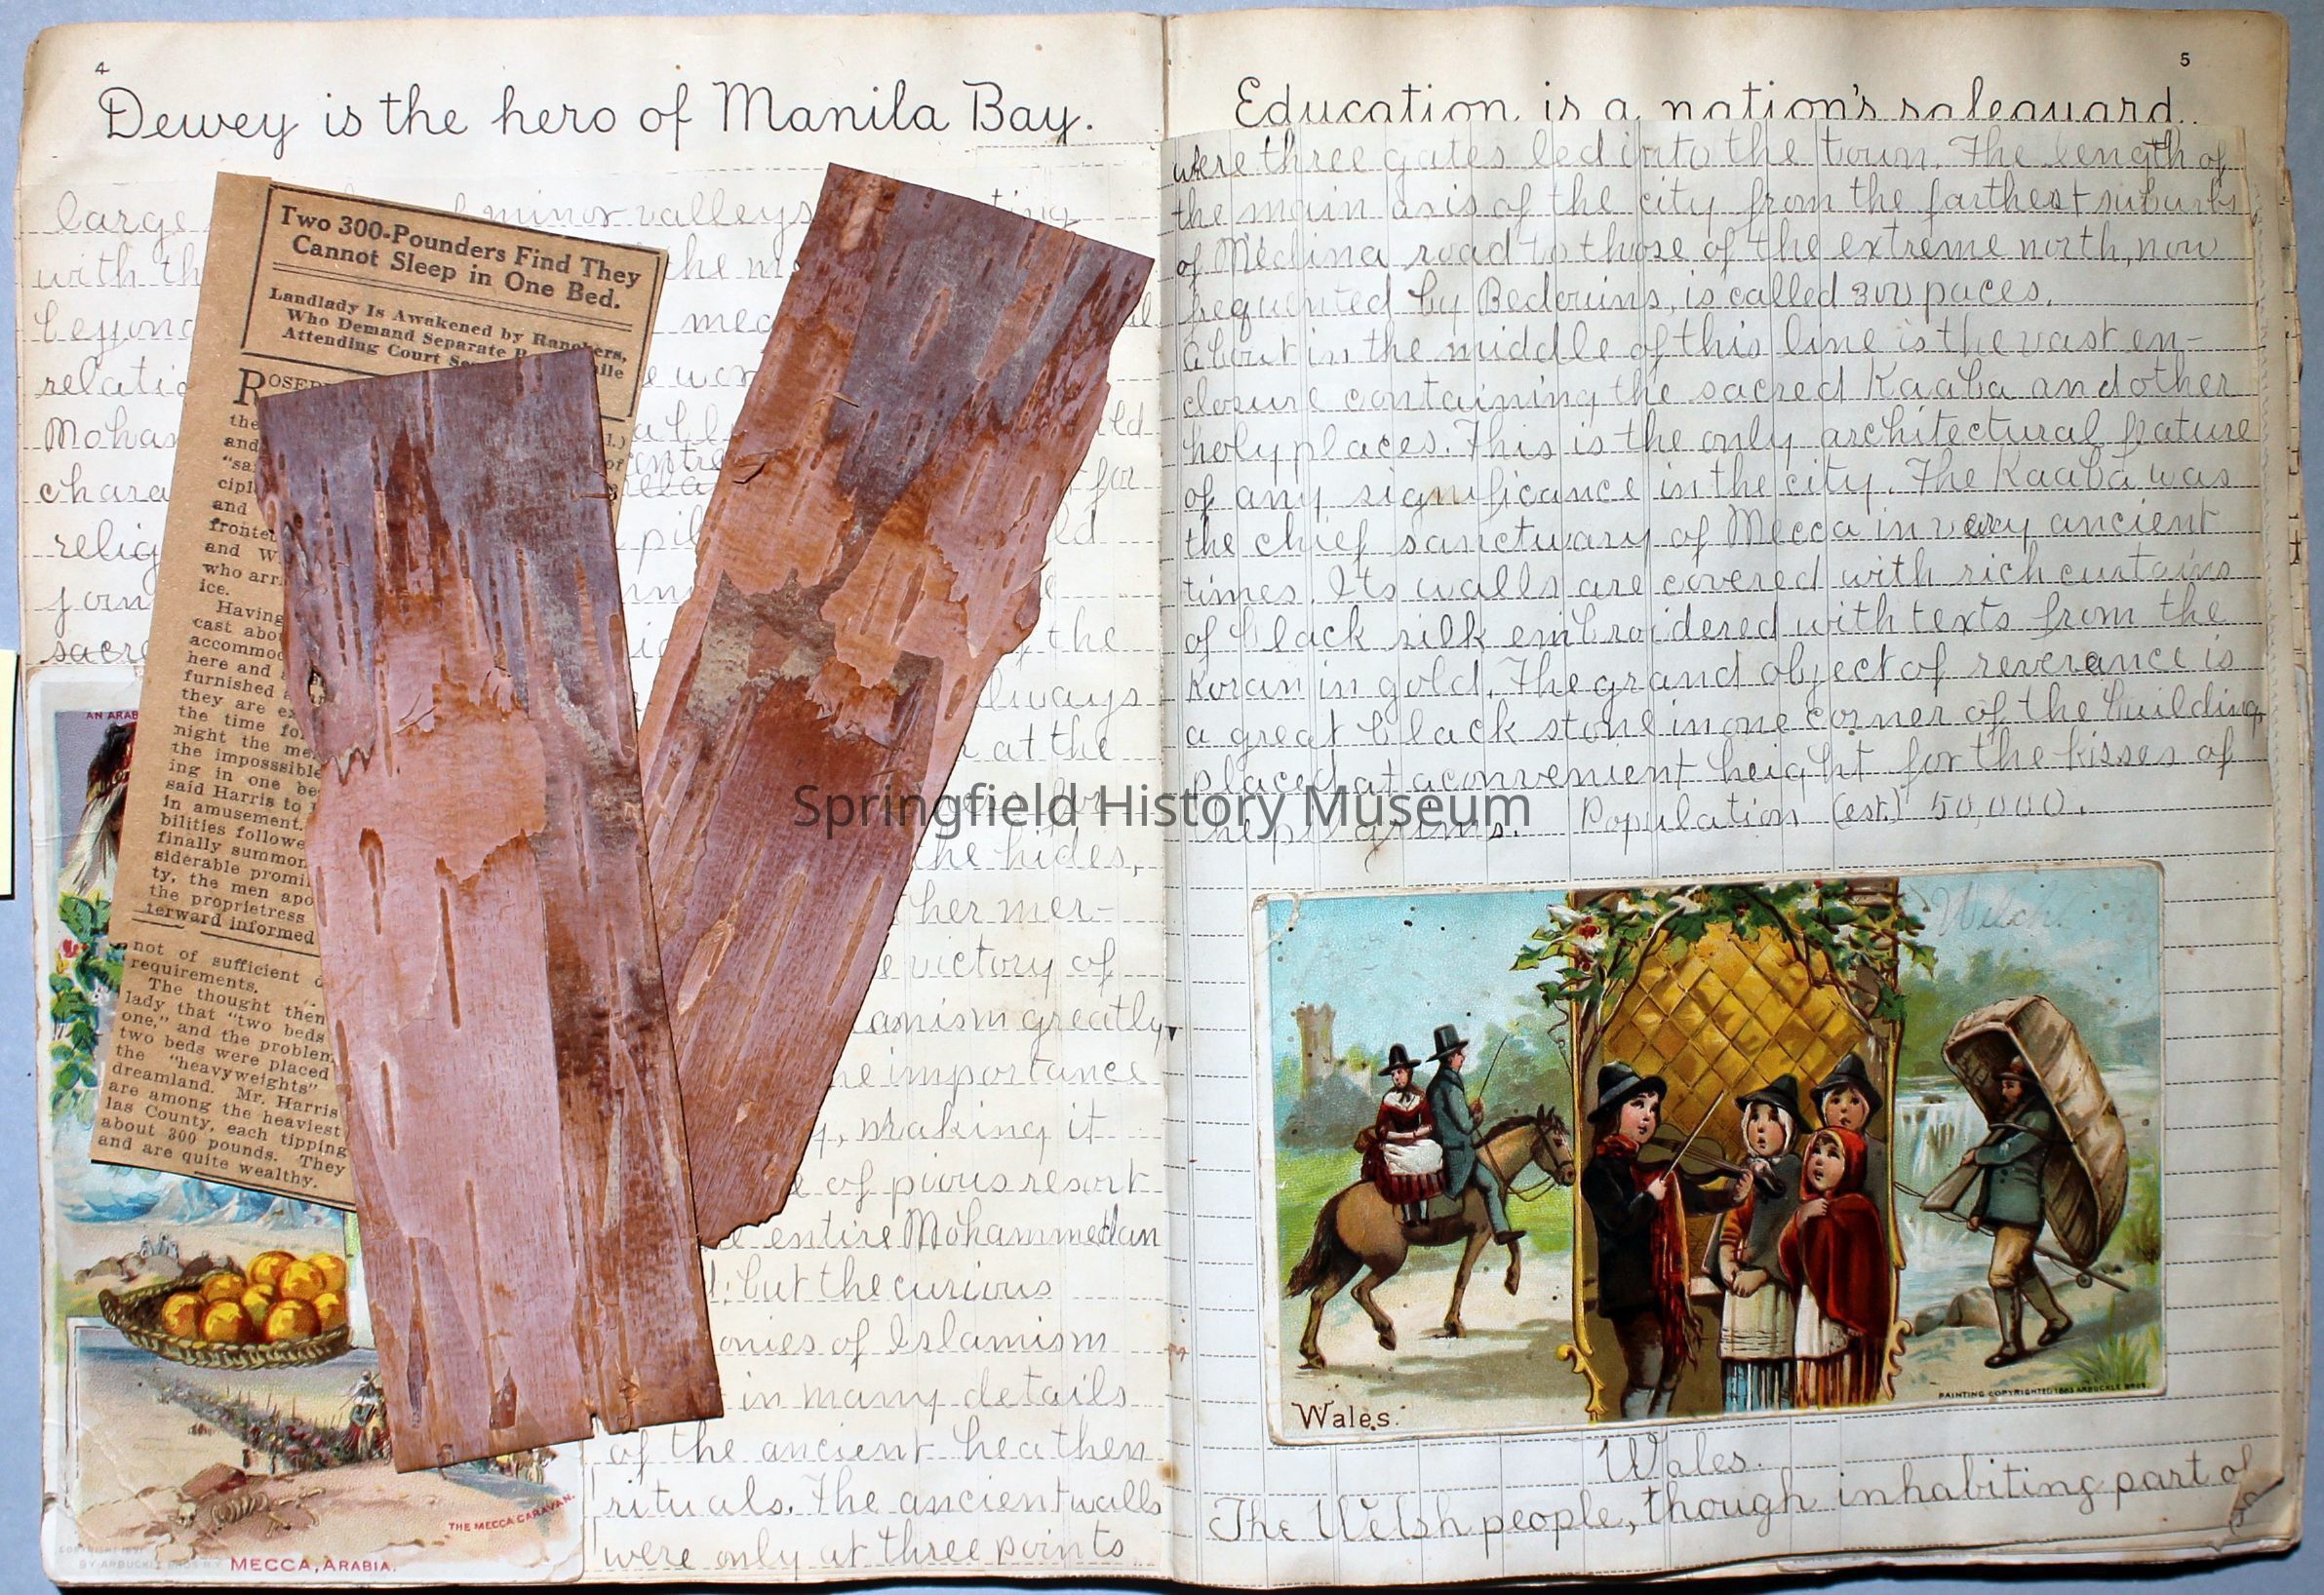 4
Dewey is the hero of Manila Bay.
large minor valleys
with th
beyond
relatio
Moha
chara for
relig
forn
sacre the
always
at the
the hides,
ther mer-
victory of
amism greatly
importance
, making it
of pious resort
entire Mohammedan
but the curious
onies of Islamism
in many details
of the ancient heathen
rituals. The ancient walls
were only at three points
Two 300-Pounders Find They
Cannot Sleep in One Bed.
Landlady Is Awakened by Ranchers,
Who Demand Separate
Attending Court
the
and
"sa
cipl
and
fronte
and W
who arr
ice.
Having
cast abo
accommo
here and
furnished
they are ex
the time fo
night the me
the imposssible
ing in one be
said Harris to
in amusement.
bilities followe
finally summon
siderable promi
ty, the men apo
the proprietress
terward informed
not of sufficient
requirements.
The thought then
lady that "two beds
one," and the problem
two beds were placed
the "heavyweights"
dreamland. Mr. Harris
are among the heaviest
las County, each tipping
about 300 pounds. They
and are quite wealthy.
AN ARAB
THE MECCA CARAVAN.
BY ARBUCKLE BROS
MECCA, ARABIA.
5
Education is a nation's safeguard.
were three gates led into the town. The length of
the main axis of the city from the farthest suburbs
of Medina road to those of the extreme north, now
frequented by Bedouins, is called 300 paces.
About in the middle of this line is the vast en-
closure containing the sacred Kaaba and other
holy places. This is the only architectural feature
of any significance in the city. The Kaaba was
the chief sanctuary of Mecca in very ancient
times. Its walls are covered with rich curtains
of black silk embroidered with texts from the
Koran in gold. The grand object of reverance is
a great black stone in one corner of the building,
placed at a convenient height for the kisses of
the pilgrims. Population (est.) 50,000.
Springfield History Museum
Welch.
PAINTING COPYRIGHTED 1893 ARBUCKLE BROS.
Wales.
Wales.
The Welsh people, though inhabiting part of